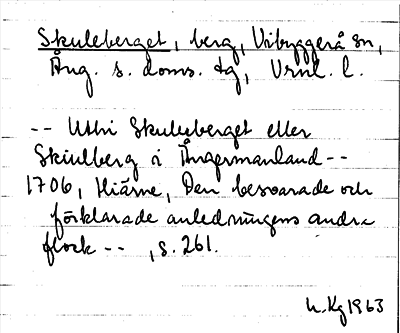 Skuleberget, berg, Vibyggerå sn,
Ång. s. doms. dg, Vrnl. l.
-- Uthi Skuluberget eller
Skiulberg i Ångermanland --
1706, Hiärne, Den beswarade och
förklarade anledningens andra
flock -- , s. 261.
1963